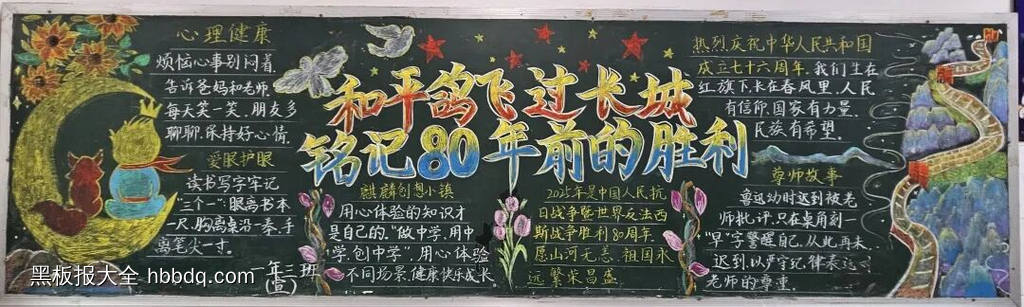 心理健康
烦恼心事别闷着,
告诉爸妈和老师,
每天笑一笑,朋友多
聊聊,保持好心情.
爱眼护眼
读书写字牢记
"三个一":眼离书本
一尺,胸离桌沿一拳,手
离笔尖一寸.
一年三班
(宣)
和平鸽飞过长城
铭记80年前的胜利
麒麟创想小镇
用心体验的知识才
是自己的."做中学,用中
学,创中学",用心体验
不同场景,健康快乐成长.
2025年是中国人民抗
日战争暨世界反法西
斯战争胜利80周年.
愿山河无恙,祖国永
远繁荣昌盛.
热烈庆祝中华人民共和国
成立七十六周年.我们生在
红旗下,长在春风里,人民
有信仰,国家有力量,
民族有希望.
尊师故事
鲁迅幼时迟到被老
师批评,只在桌角刻一
"早"字警醒自己,从此再未
迟到,以严守纪律表达
老师的尊重.
黑板报大全 hbbdq.com